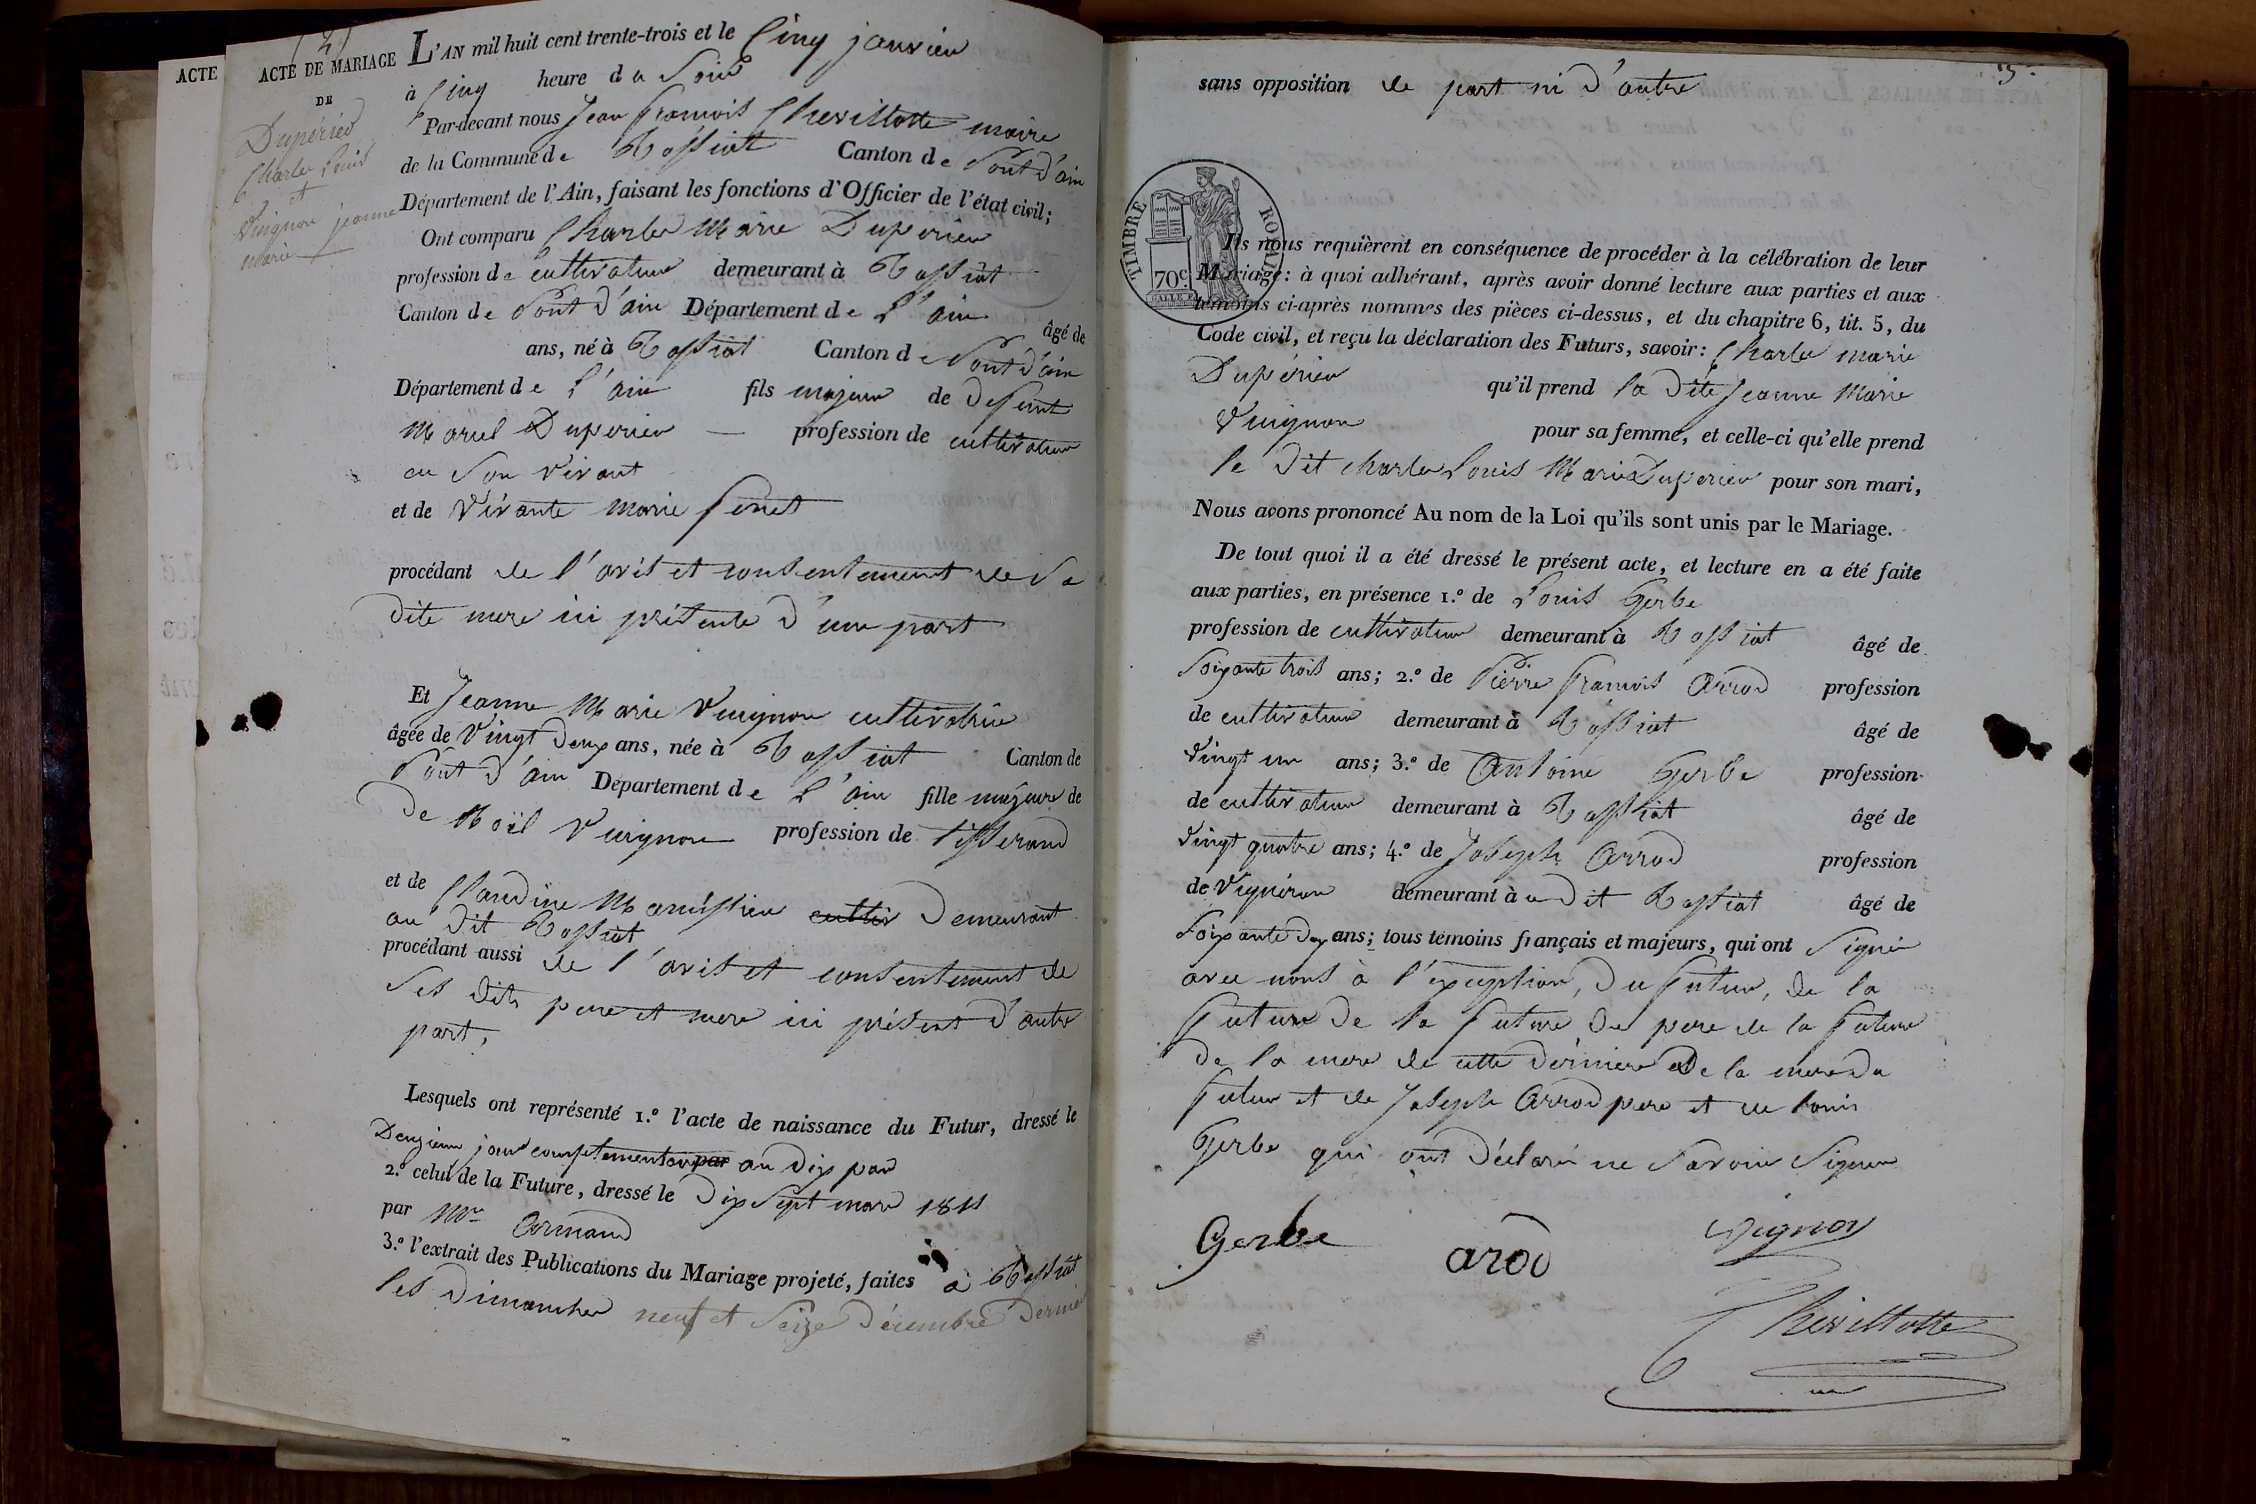 (2)
ACTE
ACTE DE MARIAGE
DE
Dupérier
Charles Louis
et
Vuignon jeanne
marie
L'AN mil huit cent trente-trois et le Cinq janvier
à Cinq heure du Soir
Par-devant nous Jean françois Chevillotte maire
de la Commune de Tossiat Canton de Pont d'ain
Département de l'Ain, faisant les fonctions d'Officier de l'état civil;
Ont comparu Charles Marie Duperier
profession de cultivateur demeurant à Tossiat
Canton de Pont d'ain Département de L'ain âgé de
ans, né à Tossiat Canton de Pont d'ain
Département de L'ain fils majeur de defunt
Duperier profession de cultivateur
en Son vivant
et de vivante marie
procédant de l'avis et consentement de Sa
dite mere ici présente d'une part
Et Jeanne Marie Vuignon cultivatrice
âgée de vingt deux ans, née à Tossiat Canton de
Pont d'ain Département de L'ain fille majeure de
de Noël Vuignon profession de tisserand
et de Claudine cultiv demeurant
au dit Tossiat
procédant aussi de l'avis et consentement de
Ses dits pere et mere ici présent d'autre
part,
Lesquels ont représenté 1.º l'acte de naissance du Futur, dressé le
Deuxieme jour complementair par an dix par
2.º celui de la Future, dressé le Dix Sept mars 1811
par Mr Armand
3.º l'extrait des Publications du Mariage projeté, faites à Tossiat
les dimanches neuf et Seize décembre dernier
3
sans opposition de part ni d'autre
TIMBRE ROYAL
70c.
Ils nous requièrent en conséquence de procéder à la célébration de leur
Mariage: à quoi adhérant, après avoir donné lecture aux parties et aux
témoins ci-après nommés des pièces ci-dessus, et du chapitre 6, tit. 5, du
Code civil, et reçu la déclaration des Futurs, savoir: Charles marie
Dupérier qu'il prend la dite Jeanne Marie
Vuignon pour sa femme, et celle-ci qu'elle prend
le dit charles Louis Marie Duperier pour son mari,
Nous avons prononcé Au nom de la Loi qu'ils sont unis par le Mariage.
De tout quoi il a été dressé le présent acte, et lecture en a été faite
aux parties, en présence 1.º de Louis Gerbe
profession de cultivateur demeurant à Tossiat âgé de
Soixante trois ans; 2.º de Pierre françois Arrod profession
de cultivateur demeurant à Tossiat âgé de
vingt un ans; 3.º de Antoine Gerbe profession
de cultivateur demeurant à Tossiat âgé de
vingt quatre ans; 4.º de Joseph Arrod profession
de vigneron demeurant à u dit Tossiat âgé de
Soixante dix ans; tous témoins français et majeurs, qui ont Signé
avec nous à l'exception, du futur, de la
future de la future du pere de la future
de la mere de cette derniere de la mere du
futur et de Joseph Arrod pere et de Louis
Gerbe qui ont déclaré ne Savoir Signer
Gerbe
arod
Vignon
Chevillotte